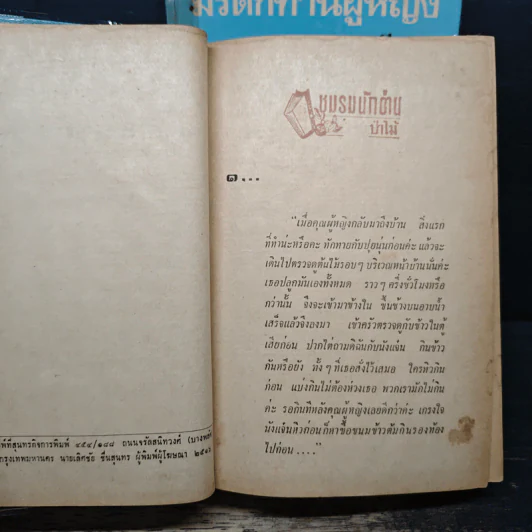 มรดกท่านผู้หญิง
ชมรมนักอ่าน
ป่าไม้
๑...
"เมื่อคุณผู้หญิงกลับมาถึงบ้าน สิ่งแรก
ที่ทำน่ะหรือคะ ทักทายกับปุยนุ่นก่อนค่ะ แล้วจะ
เดินไปตรวจดูต้นไม้รอบๆ บริเวณหน้าบ้านนั่นค่ะ
เธอปลูกมันเองทั้งหมด ราวๆ ครึ่งชั่วโมงหรือ
กว่านั้น จึงจะเข้ามาข้างใน ขึ้นข้างบนอาบน้ำ
เสร็จแล้วจึงลงมา เข้าครัวตรวจดูกับข้าวในตู้
เสียก่อน ปากไต่ถามดิฉันกับนังแจ๋น กินข้าว
กันหรือยัง ทั้งๆ ที่เธอสั่งไว้เสมอ ใครหิวกิน
ก่อน แบ่งกินไม่ต้องห่วงเธอ พวกเรามักไม่กิน
ค่ะ รอกินทีหลังคุณผู้หญิงเลยดีกว่าค่ะ เกรงใจ
นังแจ๋นหิวก่อนก็หาซื้อขนมข้าวต้มกินรองท้อง
ไปก่อน...."
๔๕๔/๑๔๘ ถนนจรัลสนิทวงศ์
กรุงเทพมหานคร นายเลิศชัย ชื่นสุนทร ผู้พิมพ์ผู้โฆษณา